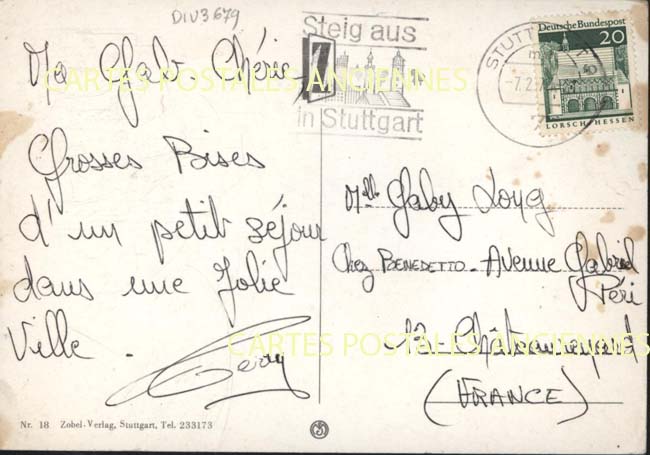 DIV3679
Ma Gaby Chérie,
Grosses Bises
d'un petit séjour
dans une Jolie
Ville.
Gerry
Steig aus
in Stuttgart
STUTT
-7.2.
Deutsche Bundespost
20
LORSCH/HESSEN
Mlle Gaby
Chez BENEDETTO. Avenue Gabriel
Péri
13-Châteaurenard
(FRANCE)
CARTES POSTALES ANCIENNES
CARTES POSTALES ANCIENNES
Nr. 18 Zobel-Verlag, Stuttgart, Tel. 233173